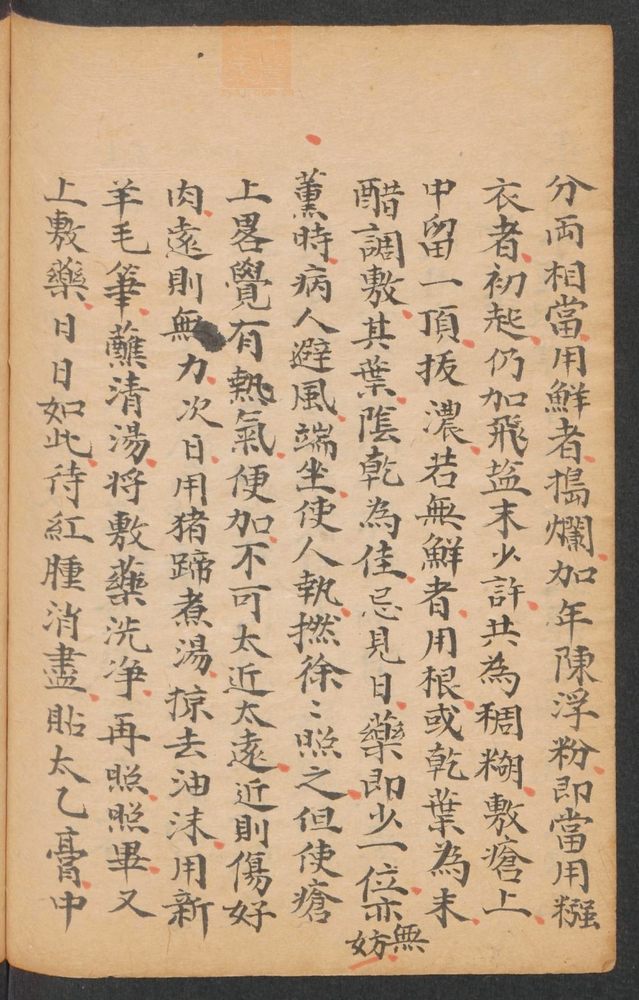 分両相當用鮮者搗爛加年陳浮粉即當用糨
衣者初起仍加飛盐末少許共為稠糊敷瘡上
中留一頂拔濃若無鮮者用根或乾葉為末
醋調敷其葉陰乾為佳忌見日藥即少一位亦無妨
薰時病人避風端坐使人執撚徐〻照之但使瘡
上畧覺有熱氣便加不可太近太遠近則傷好
肉遠則無力次日用猪蹄煮湯掠去油沫用新
羊毛筆蘸清湯将敷藥洗净再照照畢又
上敷藥日日如此待紅腫消盡貼太乙膏中